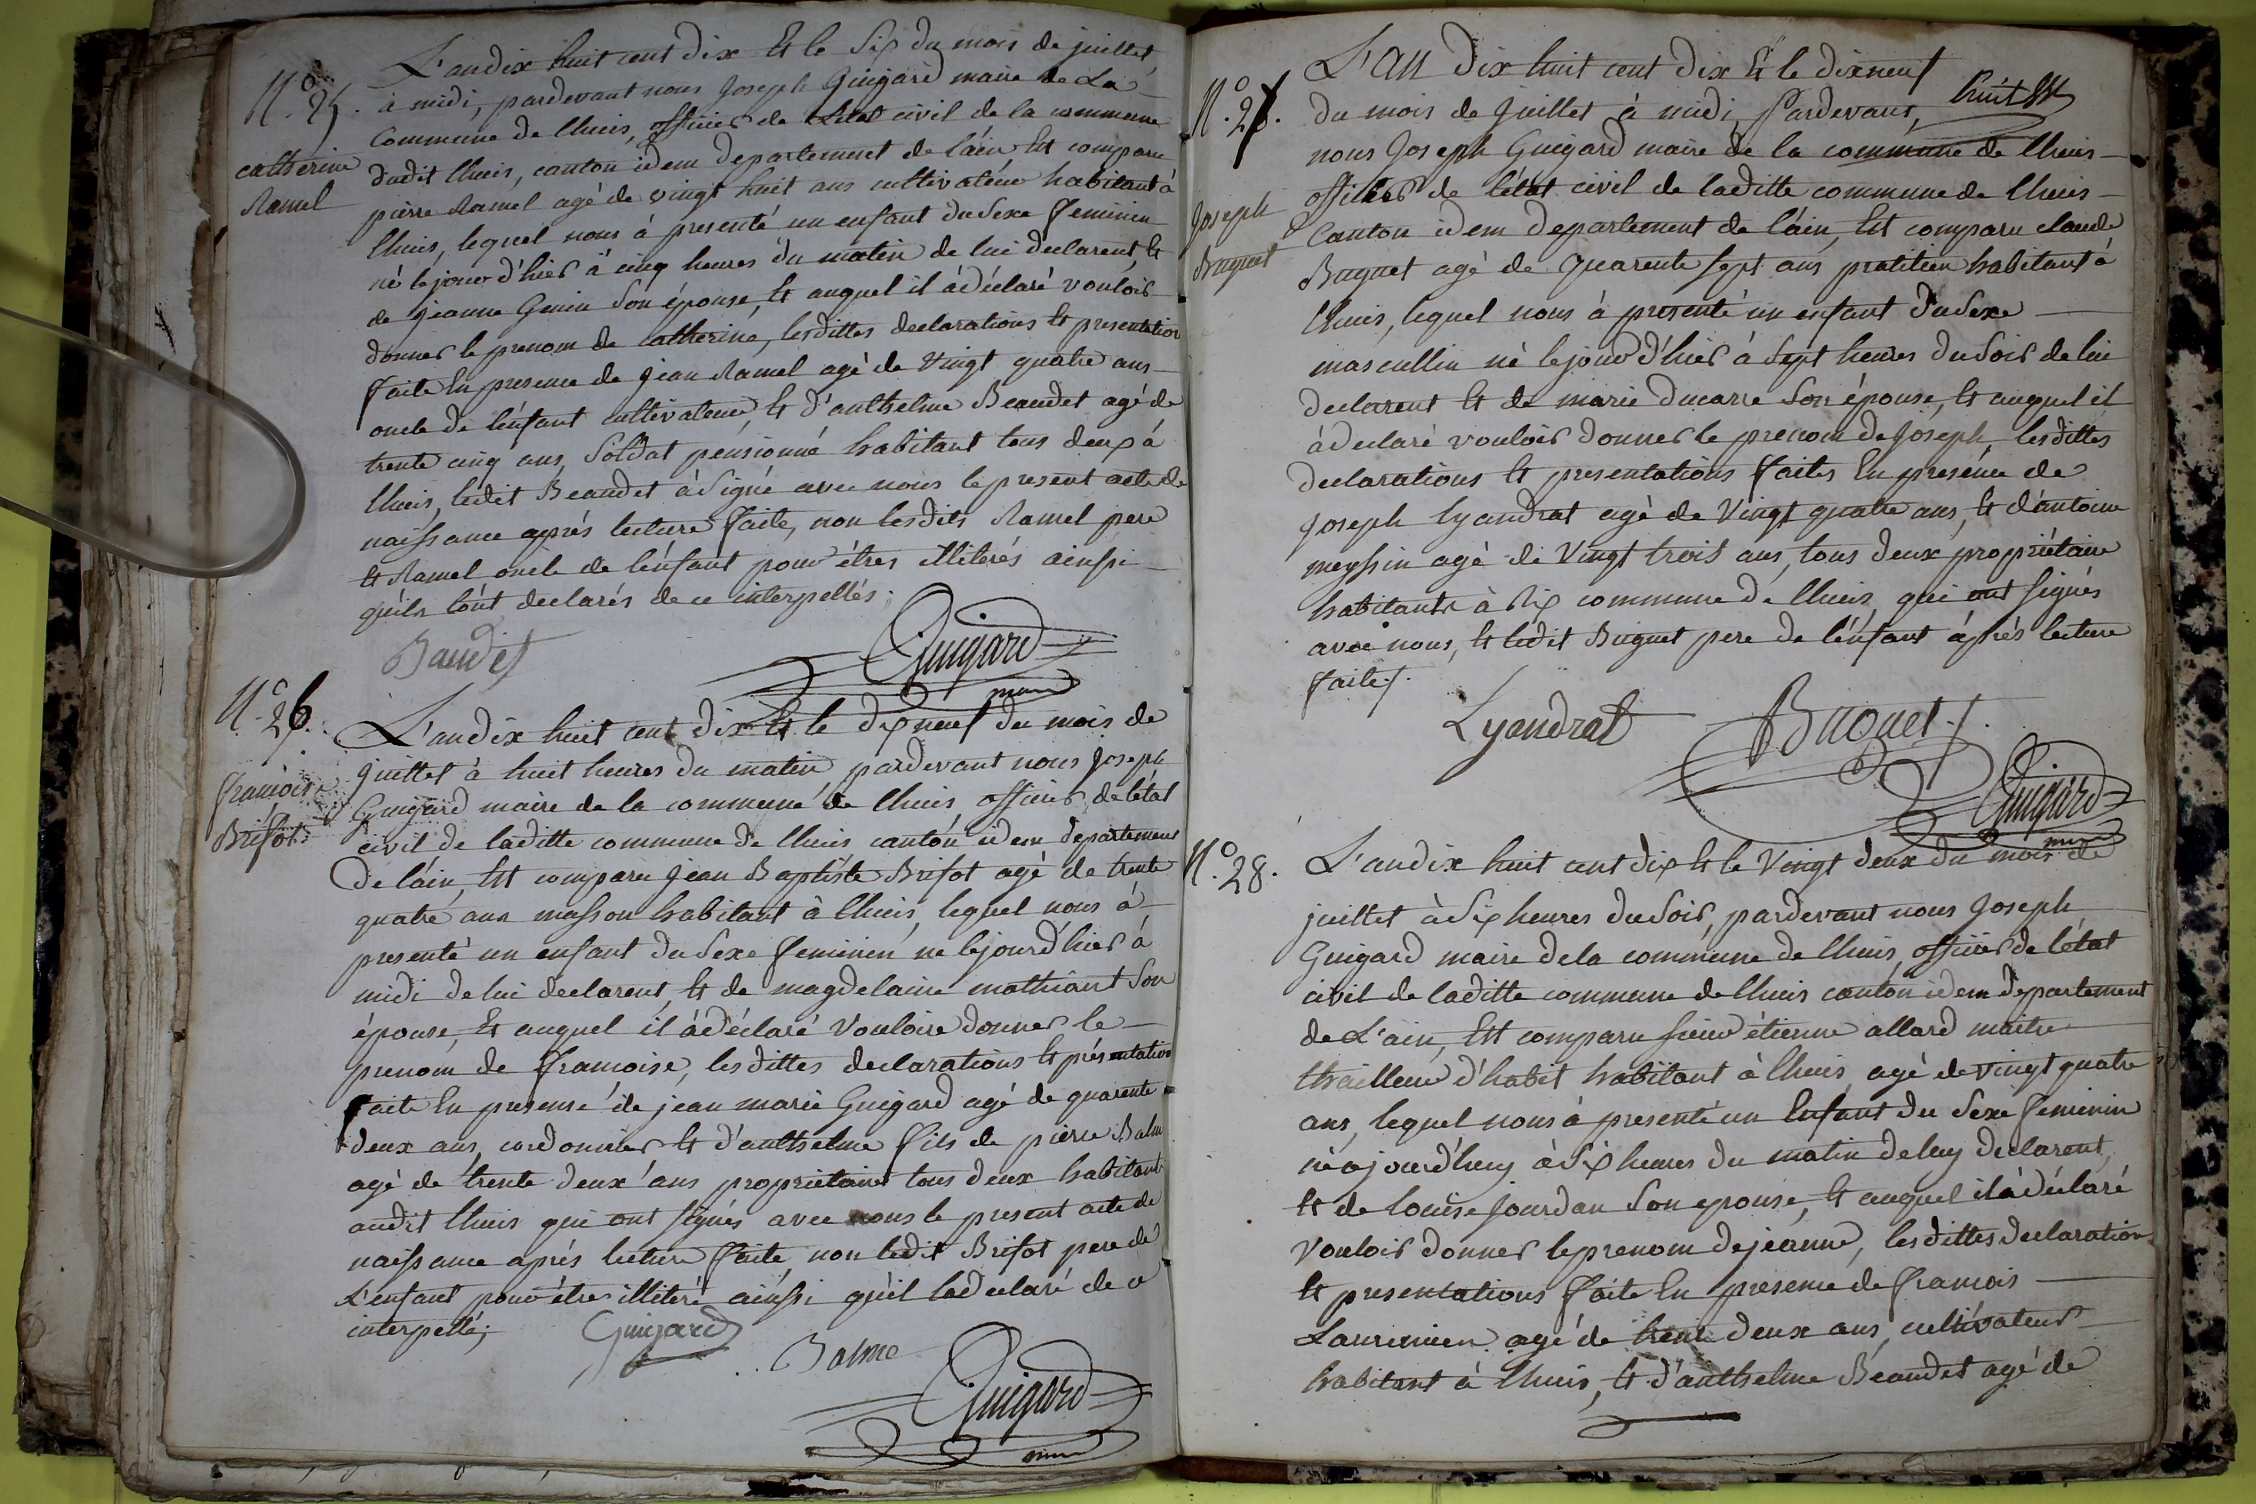 N.° 25.
catherine
Ramel
L'an dix huit cent dix Et le Six du mois de juillet
à midi, pardevant nous Joseph Guigard maire de La
Commune de lhuis, officier de L'état civil de la commune
dudit lhuis, canton idem departement de láin Est comparu
pierre Ramel agé de vingt huit ans cultivateur habitant à
lhuis, lequel nous à presenté un enfant du Sexe feminien
né le jour d'hier à cinq heures du matin de lui declarent, Et
de jeanne Genin Son épouse, Et auquel il à déclaré vouloir
donner le prenom de Catherine, lesdittes declarations Et presentation
faite En presence de jean Ramel agé de Vingt quatre ans
oncle de l'énfant cultivateur, Et d'anthelme Beaudet agé de
trente cinq ans, Soldat pensionné habitant tous deux à
lhuis, ledit Beaudet à Signé avec nous le present acte de
naissance aprés lecture faite, non lesdits Ramel pere
Et Ramel oncle de l'énfant pour étres illiterés ainssi
qu'ils l'ont declarés de ce interpellés.
Baudet
Guigard
maire
N.° 26.
francoise
Brifot
L'an dix huit cent dix Et le dix neuf du mois de
Juillet à huit heures du matin pardevant nous Joseph
Guigard maire de la commune de lhuis, officier de l'état
civil de laditte commune de lhuis canton idem departement
de láin, Est comparu jean Baptiste Brifot agé de trente
quatre ans masson habitant à lhuis, lequel nous à
presenté un enfant du Sexe feminien né le jour d'hier à
midi de lui declarent, Et de magdelaine mathiant Son
épouse, Et auquel il à déclaré Vouloire donner le
prenom de francoise, lesdittes declarations Et présentation
faite En presense de jean marie Guigard agé de quarente
deux ans, cordonnier Et d'anthelme fils de pierre Balme
agé de trente deux ans propriétaires tous deux habitant
audit lhuis qui ont signés avec nous le present acte de
naissance aprés lecture faite, non ledit Brifot pere de
L'enfant pour étre illiteré ainssi qu'il l'a declaré de ce
interpellé;
Guigard
Balme
Guigard
maire
N.° 27.
Joseph
Buguet
L'an dix huit cent dix Et le dix neuf
du mois de Juillet à midi, Pardevant,
nous Joseph Guigard maire de la commune de lhuis
officier de l'état civil de laditte commune de lhuis
Canton idem departement de láin, Est comparu claude
Buguet agé de quarente sept ans pratitien habitant à
lhuis, lequel nous à presenté un enfant du Sexe
mascullin né le jour d'hier à Sept heures du Soir de lui
declarent Et de marie ducarre Son épouse, Et auquel il
à declaré vouloir donner le prenom de Joseph, lesdittes
declarations Et presentations faites En presénce de
Joseph lyandrat agé de Vingt quatre ans, Et d'antoine
meyssin agé de Vingt trois ans, tous deux propriétaire
habitants à Rix commune de lhuis, qui ont signés
avec nous, Et ledit Buguet pere de l'énfant aprés lecture
faite.
Lyandrat
Buguet
Guigard
maire
N.° 28.
L'an dix huit cent dix Et le Vingt deux du mois de
juillet à Six heures du Soir, pardevant nous Joseph
Guigard maire de la commune de lhuis, officier de l'état
civil de laditte commune de lhuis canton idem departement
de L'ain, Est comparu sieur étienne allard maitre
thailleur d'habit habitant à lhuis, agé de vingt quatre
ans, lequel nous à presenté un Enfant du Sexe feminin
né ajourd'huy à Six heures du matin de luy declarent,
Et de louise jourdan Son epouse, Et auquel il à déclaré
Vouloir donner le prenom de jeanne, lesdittes declaration
Et presentations faite En presence de francois
Laurencien agé de trente deux ans, cultivateur
habitant à lhuis, Et d'anthelme Beaudet agé de